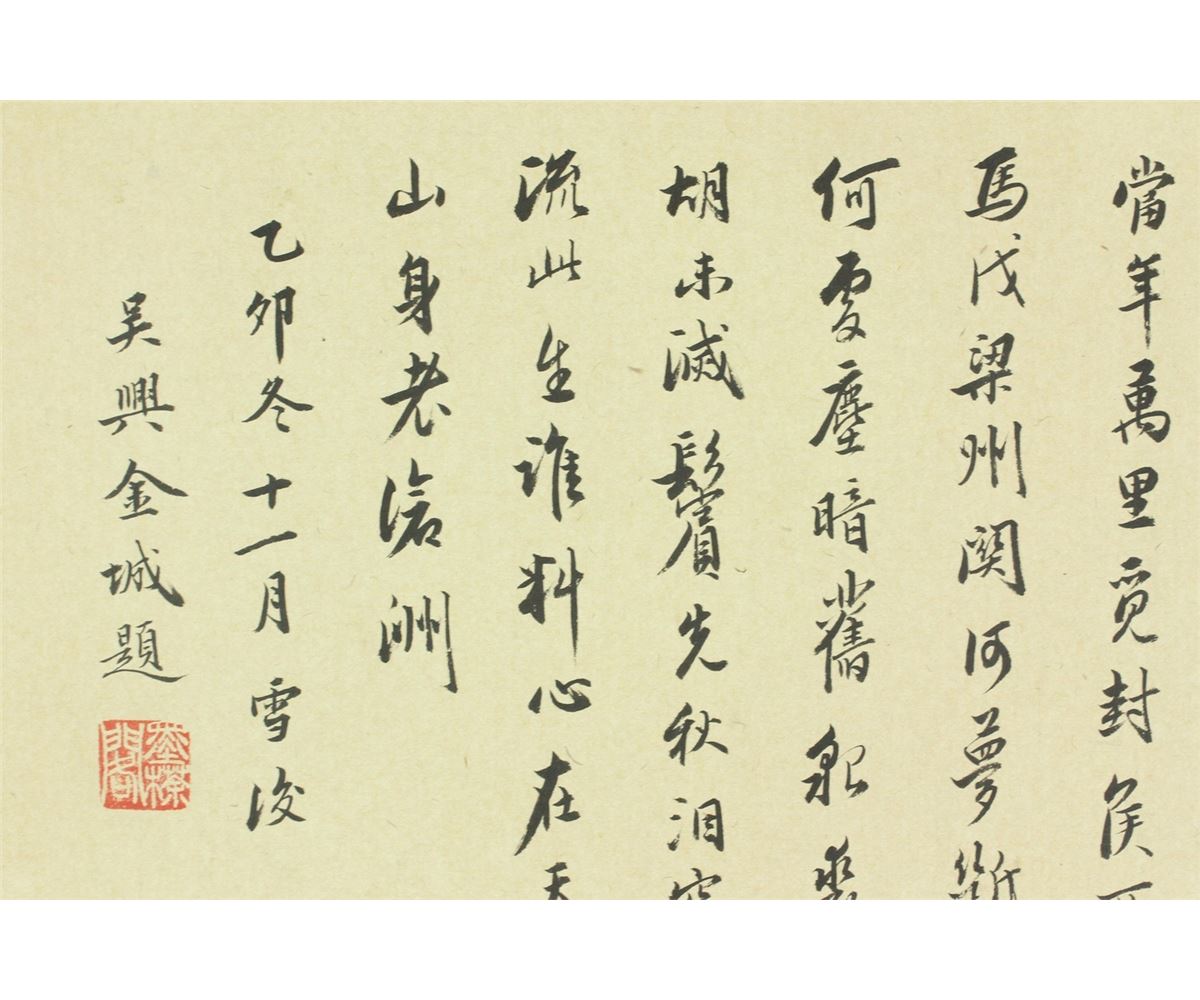 當年萬里覓封侯
馬戍梁州關河夢斷
何處塵暗舊貂裘
胡未滅鬢先秋淚空
流此生誰料心在天
山身老滄洲
乙卯冬十一月雪後
吳興金城題